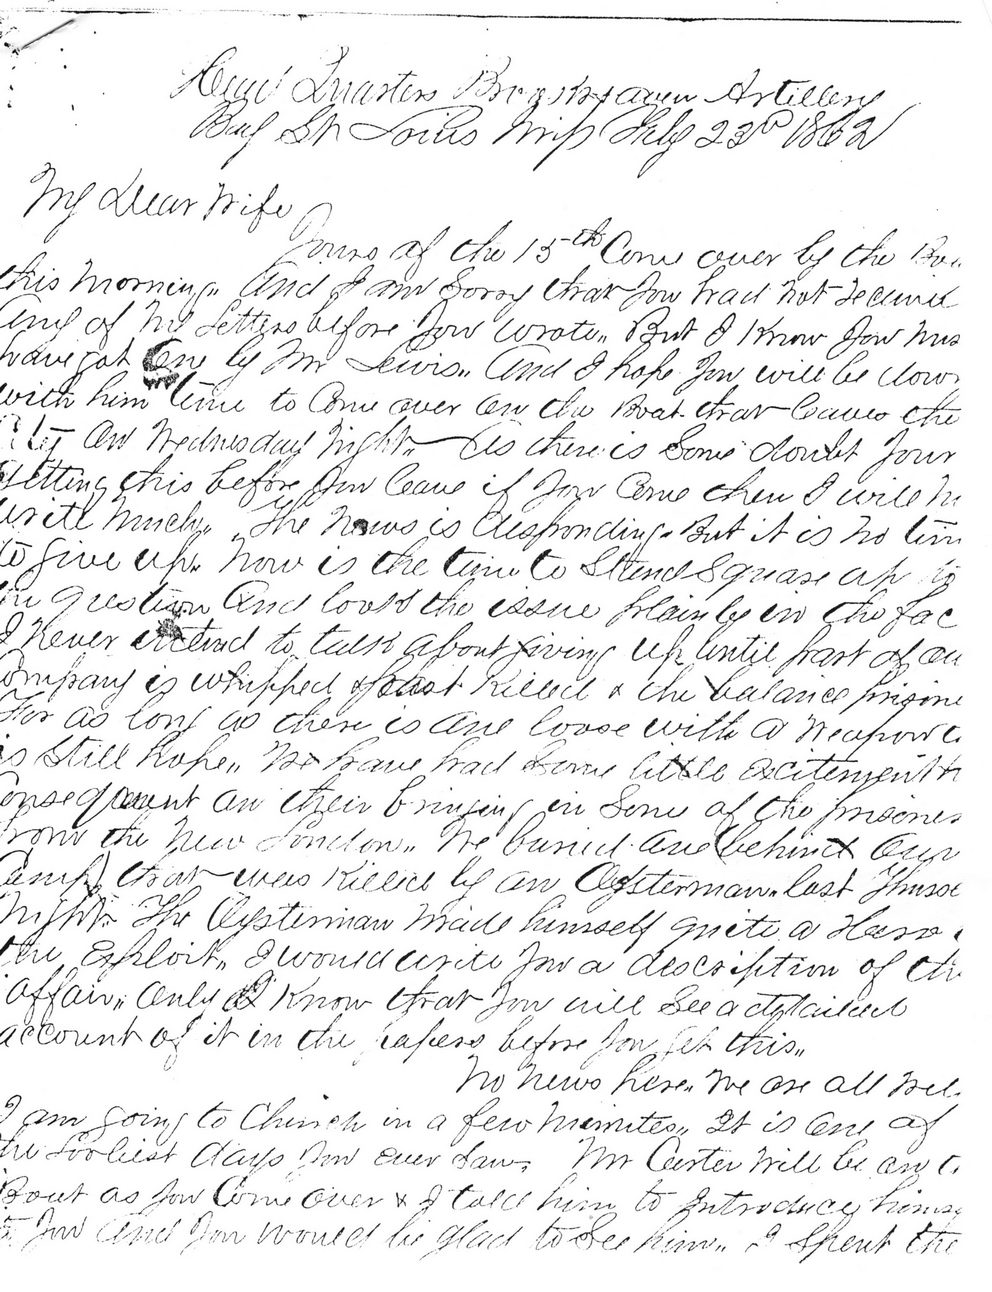 Head Quarters Brookhaven Artillery
Bay St Louis Miss July 23rd 1862
My Dear Wife
Yours of the 15th Come over by the Boa
this morning. And I am Sorry that You had not received
Any of My Letters before You wrote. But I Know You mus
have got One by Mr Lewis. And I hope You will be down
with him time to Come over on the Boat that leaves the
City on Wednesday Night. As there is Some doubt Your
getting this before You leave if You Come then I will n
write much. The News is desponding. But it is no tim
to give up. Now is the time to Stand Square up to
the question And look the issue plainly in the fac
I Never intend to talk about giving up until part of our
Company is whipped & part Killed & the balance prisone
For as long as there is One loose with a Weapon
is Still hope. We have had Some little excitement
Consequent on their bringing in Some of the prisoners
from the New London. We buried One behind Our
Camp that was Killed by an Oysterman last
Night. The Oysterman made himself quite a Hero
the exploit. I would write You a description of the
affair. Only I Know that You will See a detailed
account of it in the papers before You get this.
No News here. We are all Wel
I am going to Church in a few minutes. It is One of
the Cooliest days You ever Saw. Mr Carter Will be on
Boat as You Come over & I told him to Introduce himse
to You And You would be glad to See him. I Spent the